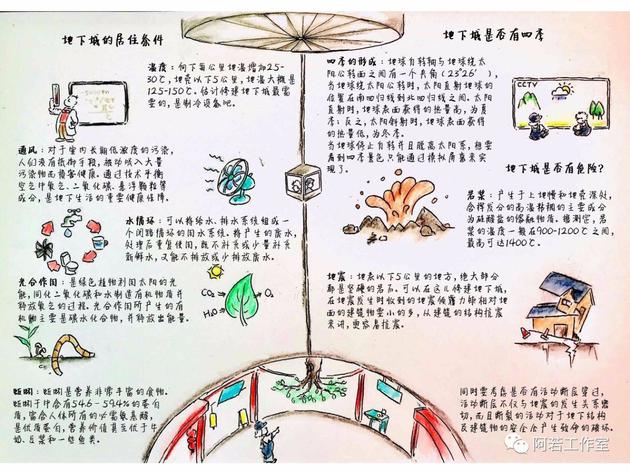 地下城的居住条件
温度：向下每公里地温增加25-
30℃，地壳以下5公里，地温大概是
125-150℃。估计修建地下城最需
要的，是制冷设备吧。
通风：对于室内长期低浓度的污染，
人们没有抵御手段，被动吸入大量
污染物而损害健康。通过技术平衡
空气中氧气、二氧化碳、悬浮颗粒等
成分，是地下生活的重要健康保障。
水循环：可以将给水、排水系统组成一
个闭路循环的用水系统。将产生的废水，
处理后重复使用，既不补充或少量补充
新鲜水，又能不排放或少排放废水。
光合作用：是绿色植物利用太阳的光
能，同化二氧化碳和水制造有机物质并
释放氧气的过程。光合作用所产生的有
机物主要是碳水化合物，并释放出能量。
CO₂
O₂
H₂O
蚯蚓：蚯蚓是营养非常丰富的食物。
蚯蚓干中含有54.6-59.4%的蛋白
质，富含人体所有的必需氨基酸，
是优质蛋白，营养价值真不低于牛
奶、豆浆和一些鱼类。
地下城是否有四季
四季的形成：地球自转轴与地球绕太
阳公转面之间有一个夹角（23°26′），
当地球绕太阳公转时，太阳直射地球的
位置在南回归线到北回归线之间。太阳
直射时，地球表面获得的热量高，为夏
季；反之，太阳斜射时，地球表面获得
的热量低，为冬季。
当地球停止自转并且脱离太阳系，想要
看到四季景色只能通过模拟屏幕来实
现了。
CCTV
地下城是否有危险？
岩浆：产生于上地幔和地壳深处，
含挥发分的高温黏稠的主要成分
为硅酸盐的熔融物质。据测定，岩
浆的温度一般在900-1200℃之间，
最高可达1400℃。
地震：地表以下5公里的地方，绝大部分
都是坚硬的岩石。可以在这儿修建地下城。
在地震发生时收到的地震倾覆力都相对地
面的建筑物要小的多，从建筑的结构抗震
来讲，更容易抗震。
同时要考虑是否有活动断层穿过，
活动断层不仅与地震的发生关系密
切，而且断裂的活动对于地下结构
及建筑物的安全会产生致命的破坏。
阿若工作室